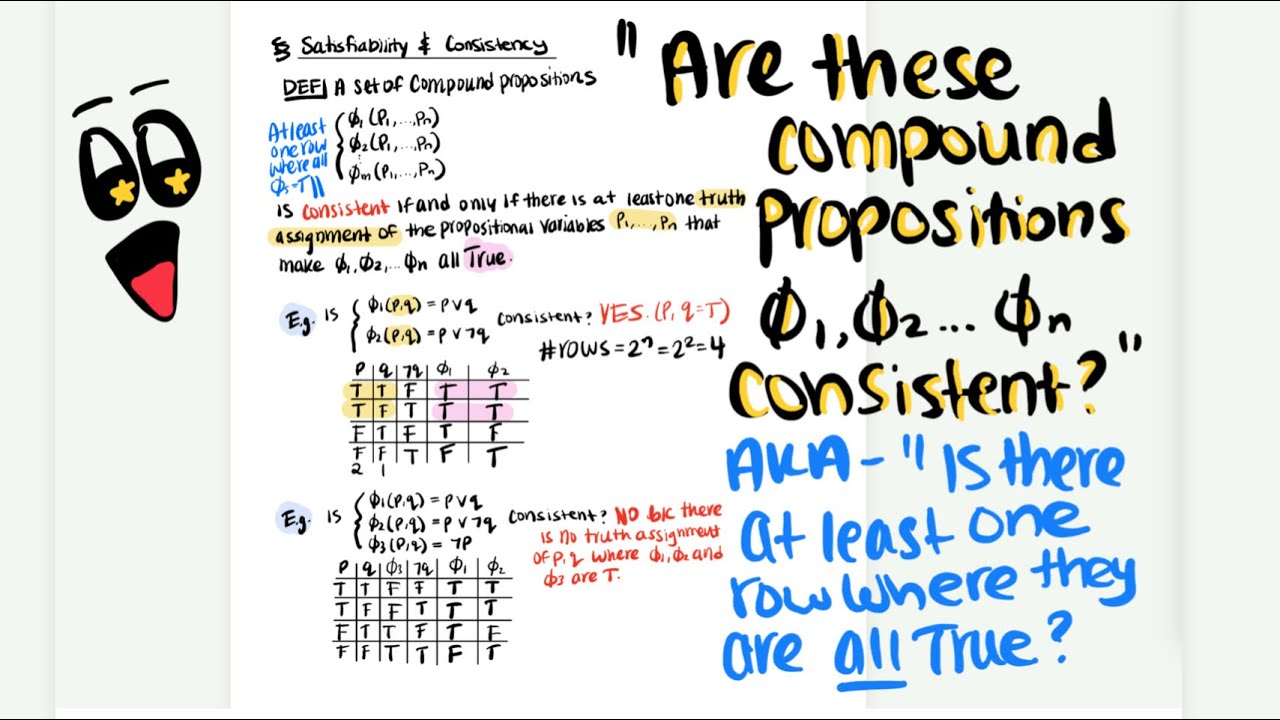 § Satisfiability & Consistency
DEF| A set of Compound propositions
At least
one row
where all
Φᵢ=T||
ϕ₁(P₁,...,Pₙ)
ϕ₂(P₁,...,Pₙ)
⋮
ϕₘ(P₁,...,Pₙ)
is consistent if and only if there is at least one truth
assignment of the propositional variables P₁,...,Pₙ that
make ϕ₁,ϕ₂,...ϕₙ all True.
E.g. IS { ϕ₁(P,q) = P∨q
ϕ₂(P,q) = P∨¬q
Consistent? YES. (P,q=T)
#rows=2ⁿ=2²=4
P q ¬q ϕ₁ ϕ₂
T T F T T
T F T T T
F T F T F
F F T F T
2 1
E.g. IS { ϕ₁(P,q) = P∨q
ϕ₂(P,q) = P∨¬q
ϕ₃(P,q) = ¬P
Consistent? NO b/c there
is no truth assignment
of P,q where ϕ₁,ϕ₂ and
ϕ₃ are T.
P q ϕ₃ ¬q ϕ₁ ϕ₂
T T F F T T
T F F T T T
F T T F T F
F F T T F T
"Are these
compound
propositions
ϕ₁,ϕ₂... ϕₙ
consistent?"
AKA - "Is there
at least one
row where they
are all True?